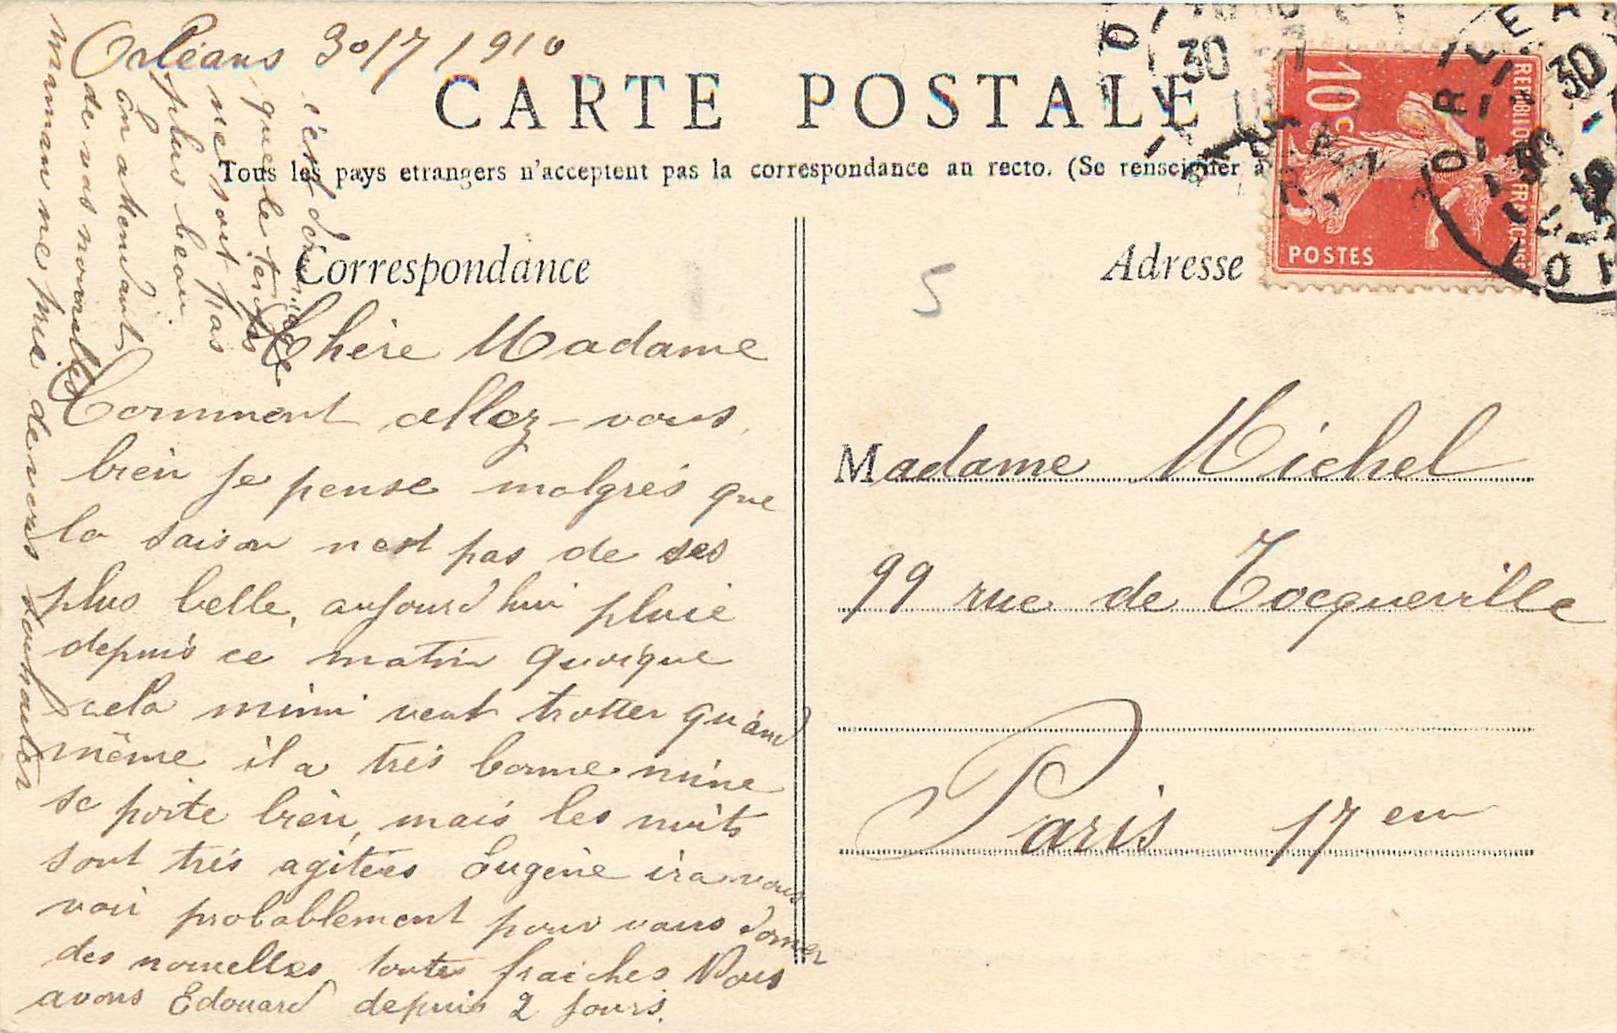 Orléans 30/7/1910
CARTE POSTALE
Tous les pays etrangers n'acceptent pas la correspondance au recto. (Se renseigner à
Correspondance
Adresse
5
10c
REPUBLIQUE FRANÇAISE
POSTES
30
30
Chère Madame
Comment allez-vous,
bien je pense malgrés que
la saison n'est pas de ses
plus belle, aujourd'hui pluie
depuis ce matin quoique
cela mimi veut trotter qu'and
même il a très bonne mine
se porte bien, mais les nuits
sont très agitées Eugène ira vous
voir probablement pour vous donner
des nouvelles toutes fraiches Nous
avons Edouard depuis 2 jours.
c'est dommage
que le temps
ne soit pas
plus beau
En attendant
de vos nouvelles
maman me prie de vous souhaiter
Madame Michel
99 rue de Tocqueville
Paris 17 em